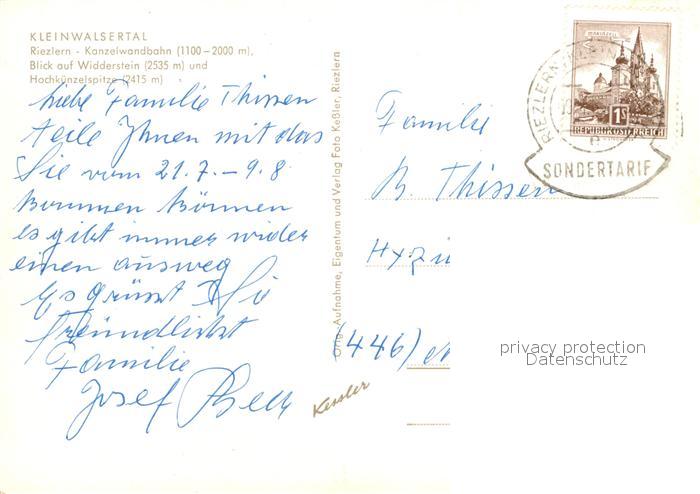 KLEINWALSERTAL
Riezlern - Kanzelwandbahn (1100–2000 m),
Blick auf Widderstein (2535 m) und
Hochkünzelspitze (2415 m)
Liebe Familie Thissen
teile Ihnen mit das
Sie vom 21.7.–9.8
kommen können
es gibt immer wider
einen ausweg
Es grüsst Sie
freundlichst
Familie
Josef
Kessler
Orig.-Aufnahme, Eigentum und Verlag Foto Keßler, Riezlern
Familie
B. Thissen
(446)
MARIAZELL
1S
REPUBLIK ÖSTERREICH
RIEZLERN
e
SONDERTARIF
privacy protection
Datenschutz